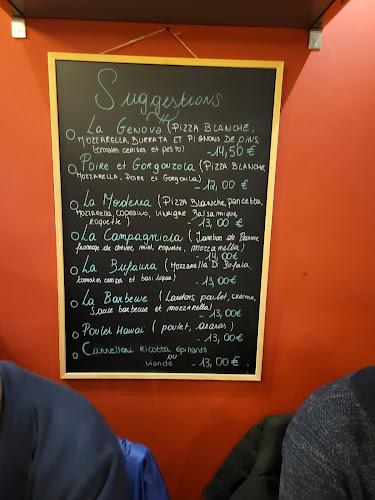 Suggestions
La Genova (Pizza Blanche,
Mozzarella, Burrata et Pignons de pins,
tomates cerises et pesto) - 14,50 €
Poire et Gorgonzola (Pizza Blanche,
Mozzarella, Poire et Gorgonzola) - 12,00 €
La Moderna (Pizza Blanche, pancetta,
Mozzarella, Balsamique,
roquette) - 13,00 €
La Campagniola (Jambon de Parme,
fromage de chèvre, miel, roquette, mozzarella)
- 14,00 €
La Bufalina (Mozzarella Di Bufala,
tomates cerises et basilique) - 13,00 €
La Barbecue (Lardons, poulet, crème,
Sauce barbecue et mozzarella)
- 13,00 €
Poulet Hawai (poulet, ananas)
- 13,00 €
Cannelloni Ricotta épinards
ou
viande - 13,00 €